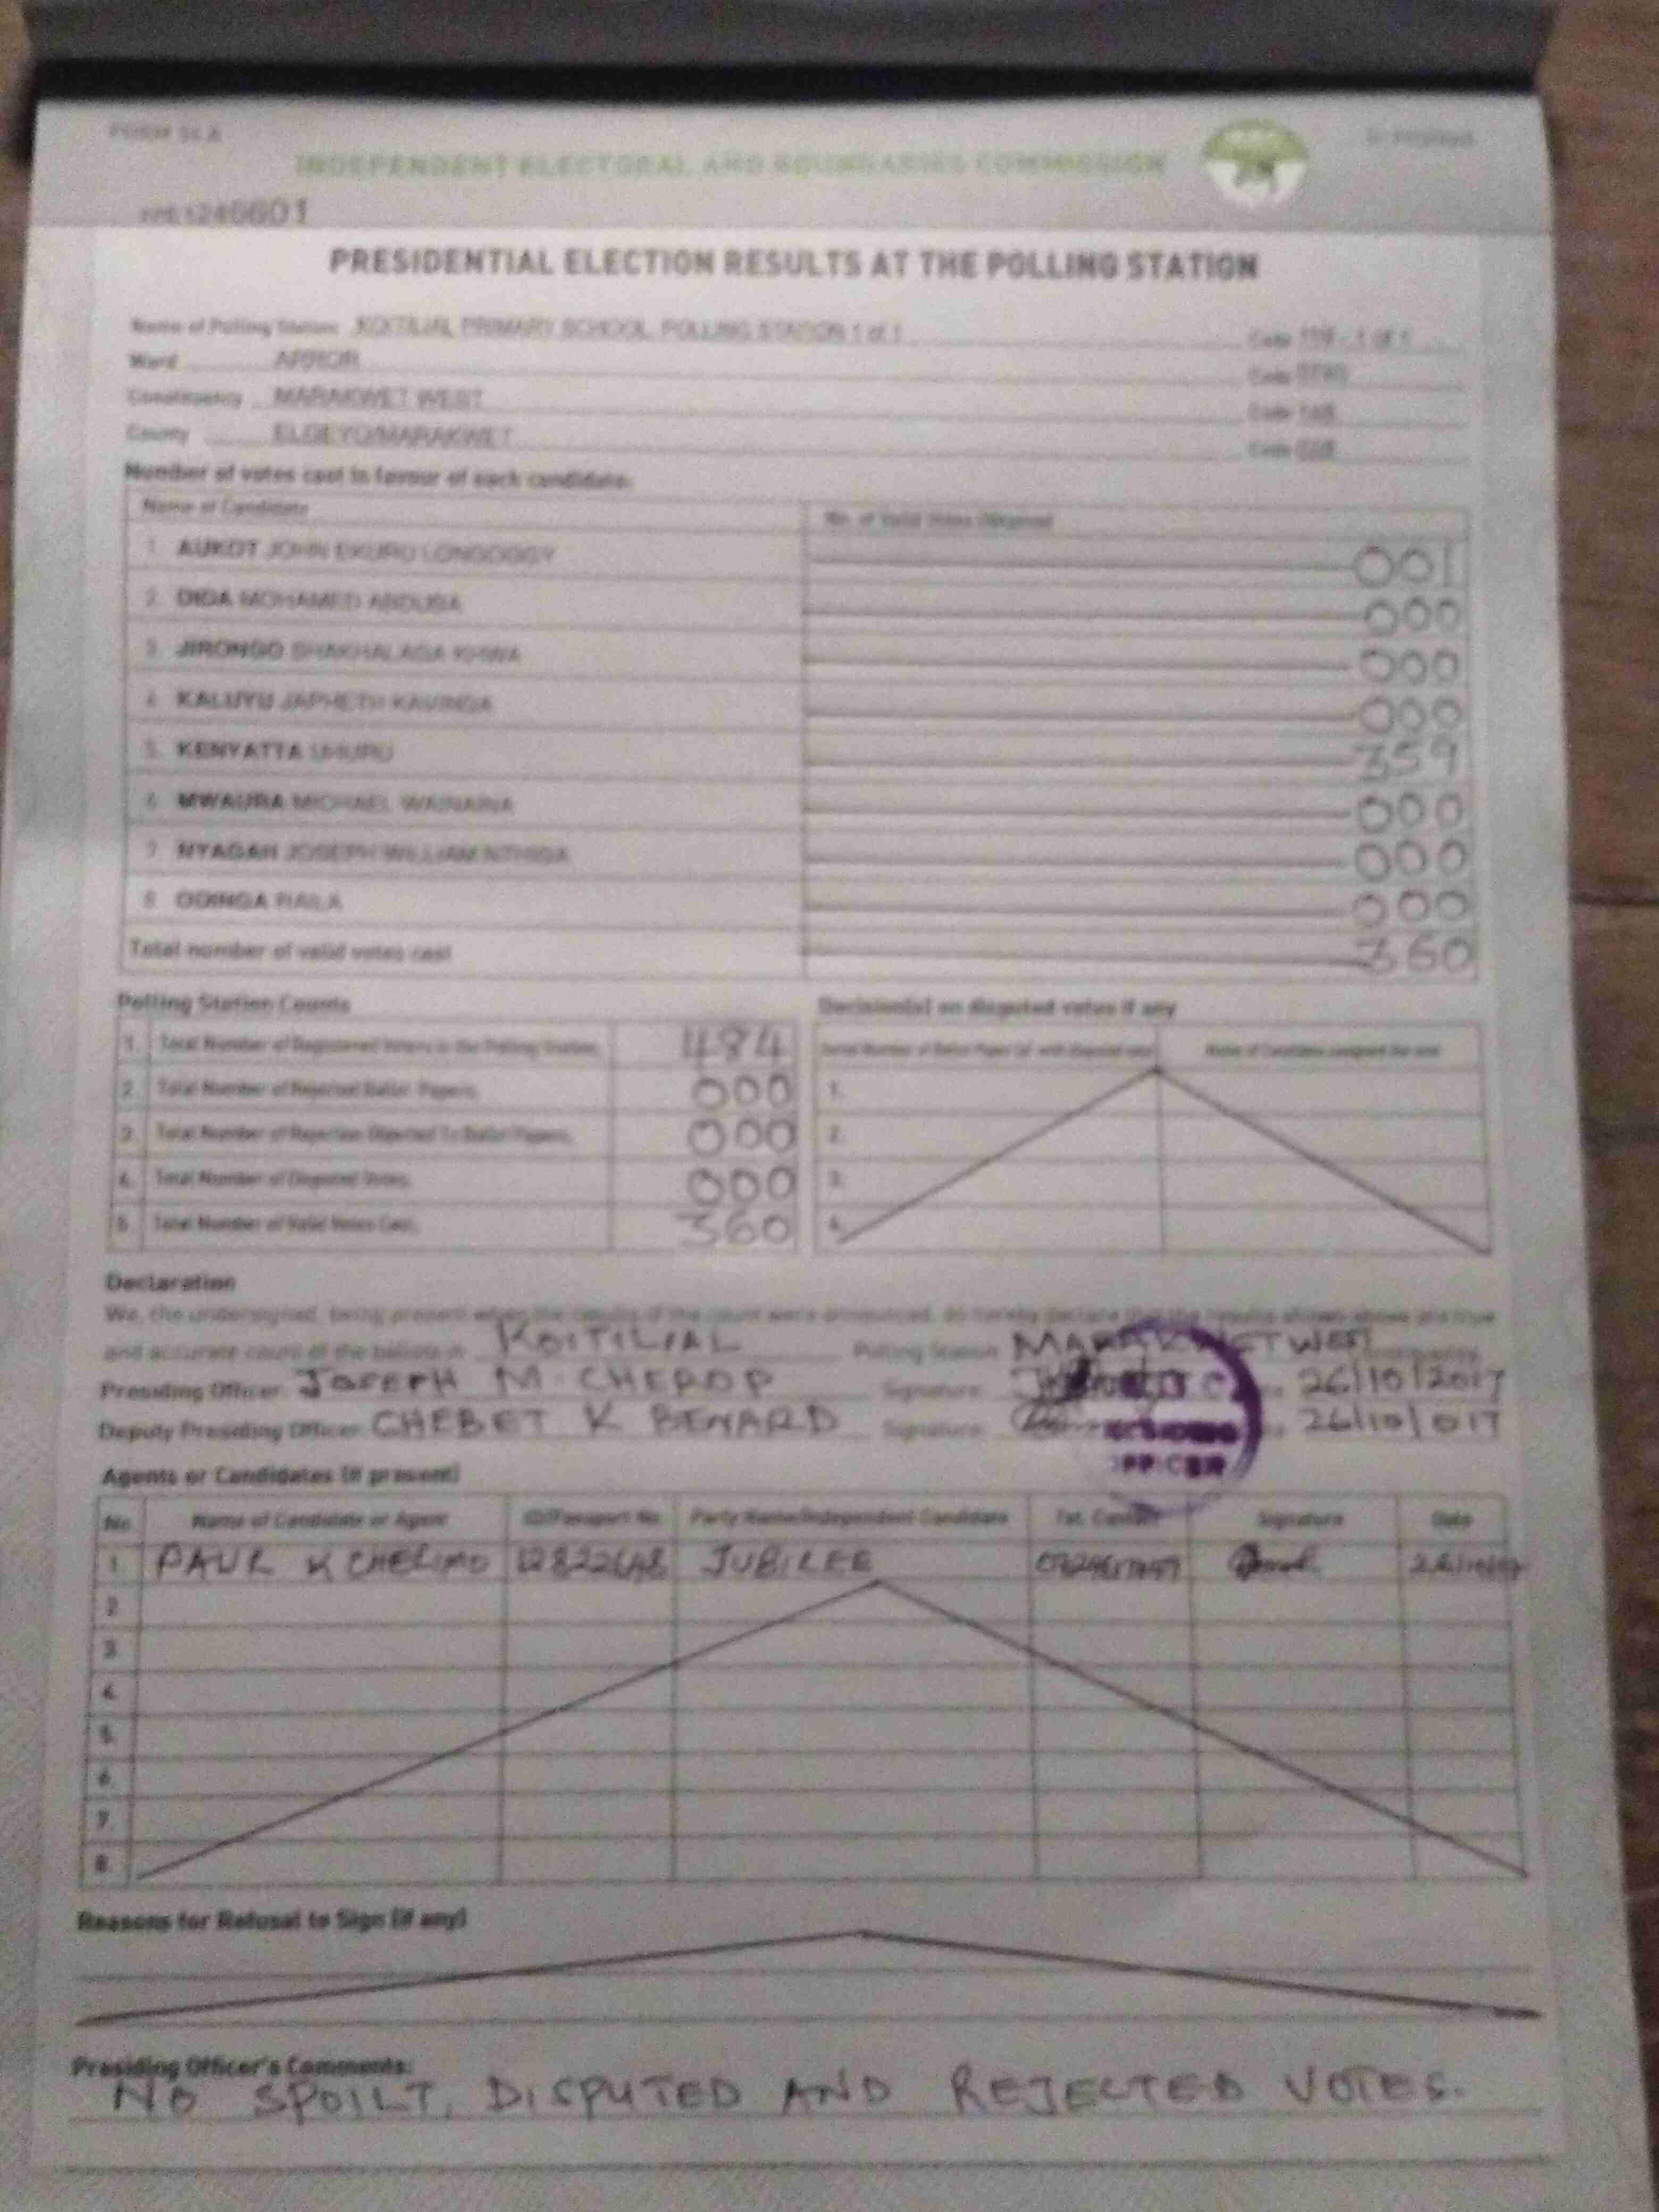 FORM 34 A
INDEPENDENT ELECTORAL AND BOUNDARIES COMMISSION
PRESIDENTIAL ELECTION RESULTS AT THE POLLING STATION
Name of Polling Station KOITILIAL PRIMARY SCHOOL POLLING STATION 1 of 1 Code 1 of 1
Ward ARROR Code
Constituency MARAKWET WEST Code
County ELGEYO/MARAKWET Code
Number of votes cast in favour of each candidate:
Name of Candidate No. of Valid Votes Obtained
1. AUKOT JOHN EKURU LONGOGGY 001
2. DIDA MOHAMED ABDUBA 000
3. JIRONGO SHAKHALAGA KHWA 000
4. KALUYU JAPHETH KAVINGA 000
5. KENYATTA UHURU 359
6. MWAURA MICHAEL WAINAINA 000
7. NYAGAH JOSEPH WILLIAM NTHIGA 000
8. ODINGA RAILA 000
Total number of valid votes cast 360
Polling Station Counts
1. Total Number of Registered Voters in the Polling Station 484
2. Total Number of Rejected Ballot Papers 000
3. Total Number of Rejection Objected To Ballot Papers 000
4. Total Number of Disputed Votes 000
5. Total Number of Valid Votes Cast 360
Decision(s) on disputed votes if any
1.
2.
3.
4.
Declaration
We, the undersigned, being present when the results of the count were announced, do hereby declare that the results shown above are true
and accurate count of the ballots in KOITILIAL Polling Station MARAKWET WEST
Presiding Officer: JOSEPH M. CHEROP Signature: 26/10/2017
Deputy Presiding Officer: CHEBET K BENARD Signature: 26/10/017
PRESIDING
OFFICER
Agents or Candidates (if present)
No. Name of Candidate or Agent ID/Passport No. Party Name/Independent Candidate Tel. Contact Signature Date
1 PAUL K CHELIMO JUBILEE
2
3
4.
5.
6.
7.
8.
Reasons for Refusal to Sign (if any)
Presiding Officer's Comments:
NO SPOILT, DISPUTED AND REJECTED VOTES.